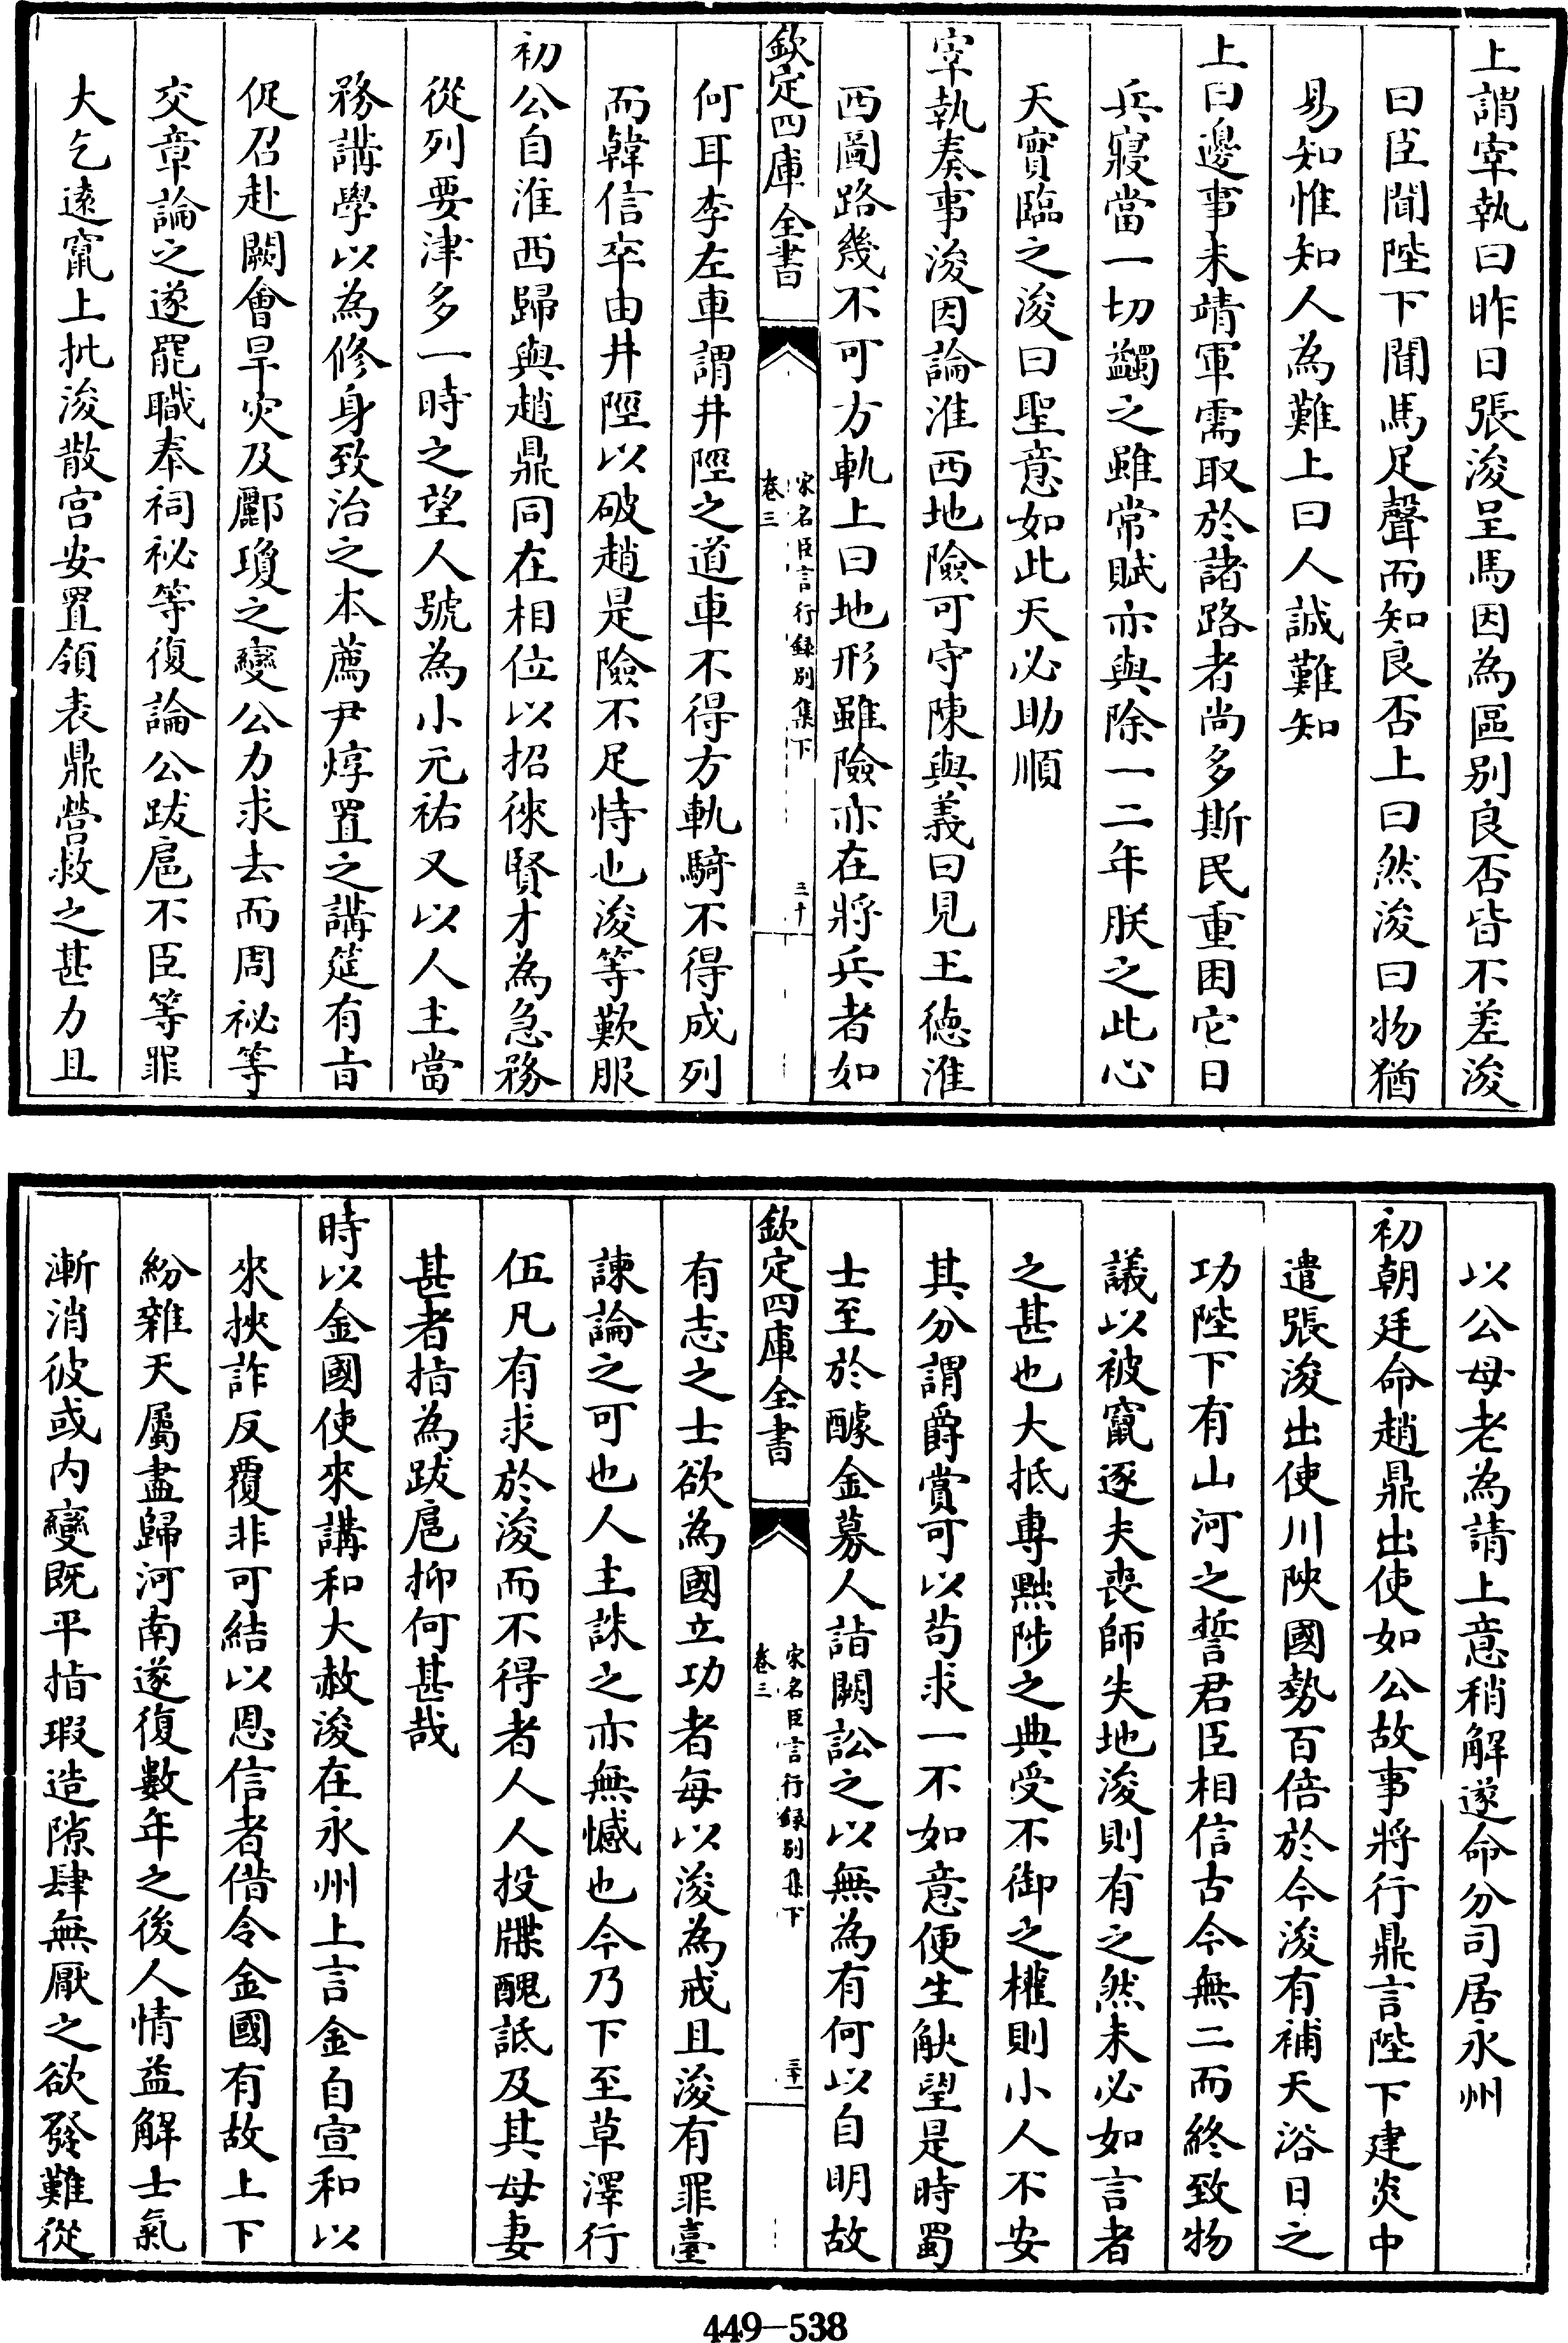 上謂宰執曰昨日張浚呈馬因為區别良否皆不差浚
曰臣聞陛下聞馬足聲而知良否上曰然浚曰物猶
易知惟知人為難上曰人誠難知
上曰邊事未靖軍需取於諸路者尚多斯民重困它日
兵寢當一切蠲之雖常賦亦與除一二年朕之此心
天實臨之浚曰聖意如此天必助順
宰執奏事浚因論淮西地險可守陳與義曰見王徳淮
西圖路幾不可方軌上曰地形雖險亦在將兵者如
欽定四庫全書
宋名臣言行録别集下
卷三
三十
何耳李左車謂井陘之道車不得方軌騎不得成列
而韓信卒由井陘以破趙是險不足恃也浚等歎服
初公自淮西歸與趙鼎同在相位以招徠賢才為急務
從列要津多一時之望人號為小元祐又以人主當
務講學以為修身致治之本薦尹焞置之講筵有旨
促召赴闕會旱灾及酈瓊之變公力求去而周祕等
交章論之遂罷職奉祠祕等復論公跋扈不臣等罪
大乞遠竄上批浚散官安置領表鼎營救之甚力且
以公母老為請上意稍解遂命分司居永州
初朝廷命趙鼎出使如公故事將行鼎言陛下建炎中
遣張浚出使川陜國勢百倍於今浚有補天浴日之
功陛下有山河之誓君臣相信古今無二而終致物
議以被竄逐夫喪師失地浚則有之然未必如言者
之甚也大抵專黜陟之典受不御之權則小人不安
其分謂爵賞可以苟求一不如意便生觖望是時蜀
士至於醵金募人詣闕訟之以無為有何以自明故
欽定四庫全書
宋名臣言行録别集下
卷三
三十一
有志之士欲為國立功者每以浚為戒且浚有罪臺
諫論之可也人主誅之亦無憾也今乃下至草澤行
伍凡有求於浚而不得者人人投牒醜詆及其母妻
甚者指為跋扈抑何甚哉
時以金國使來講和大赦浚在永州上言金自宣和以
來挾詐反覆非可結以恩信者借令金國有故上下
紛雜天屬盡歸河南遂復數年之後人情益解士氣
漸消彼或内變既平指瑕造隙肆無厭之欲發難從
449—538